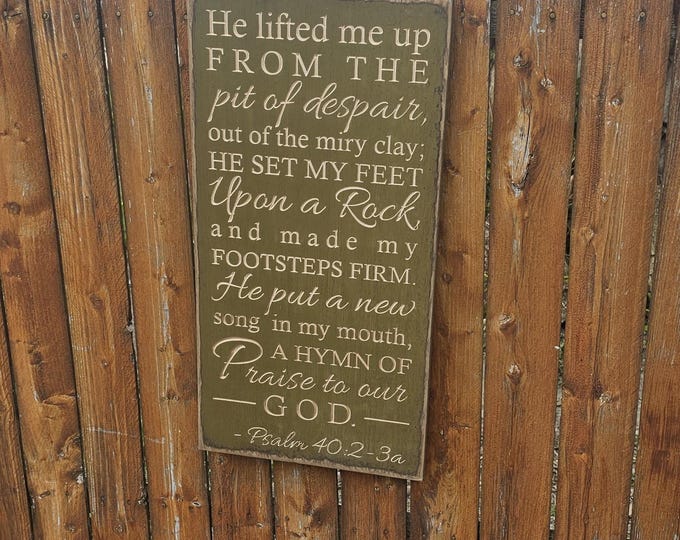 He lifted me up
FROM THE
pit of despair,
out of the miry clay;
HE SET MY FEET
Upon a Rock,
and made my
FOOTSTEPS FIRM.
He put a new
song in my mouth,
A HYMN OF
Praise to our
— GOD. —
- Psalm 40:2-3a